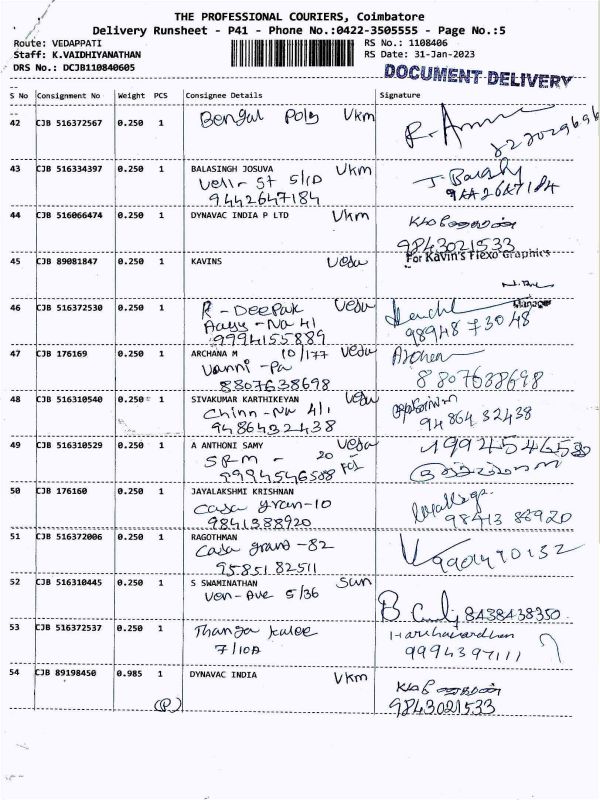 THE PROFESSIONAL COURIERS, Coimbatore
Delivery Runsheet - P41 - Phone No.:0422-3505555 - Page No.:5
Route: VEDAPPATI RS No.: 1108406
Staff: K.VAIDHIYANATHAN RS Date: 31-Jan-2023
DRS No.: DCJB110840605
DOCUMENT DELIVERY
S No Consignment No Weight PCS Consignee Details Signature
42 CJB 516372567 0.250 1 Bengal Polg Vkm
43 CJB 516334397 0.250 1 BALASINGH JOSUVA Vkm
St 5/1D
9442647184
44 CJB 516066474 0.250 1 DYNAVAC INDIA P LTD Vkm
9843021533
45 CJB 89081847 0.250 1 KAVINS Veda For Kavin's Flexo Graphics
Manager
46 CJB 516372530 0.250 1 R - Deepak Veda
Na 41 98948 73048
9994155889
47 CJB 176169 0.250 1 ARCHANA M 10/177 Veda
Vanni - Pa
8807638698 8807638698
48 CJB 516310540 0.250 1 SIVAKUMAR KARTHIKEYAN Veda
Chinn - Na 4/1
9486432438 9486432438
49 CJB 516310529 0.250 1 A ANTHONI SAMY Veda
SRM - 20
50 CJB 176160 0.250 1 JAYALAKSHMI KRISHNAN
Casa gran-10
9841388920 98413 88920
51 CJB 516372006 0.250 1 RAGOTHMAN
Casa grand -82
9585182511
52 CJB 516310445 0.250 1 S SWAMINATHAN Sun
Ven - Ave 5/36 8438438350
53 CJB 516372537 0.250 1 Thanga Kalee Hariharavardhan
7/10A 9994397111
54 CJB 89198450 0.985 1 DYNAVAC INDIA Vkm
(P) 9843021533